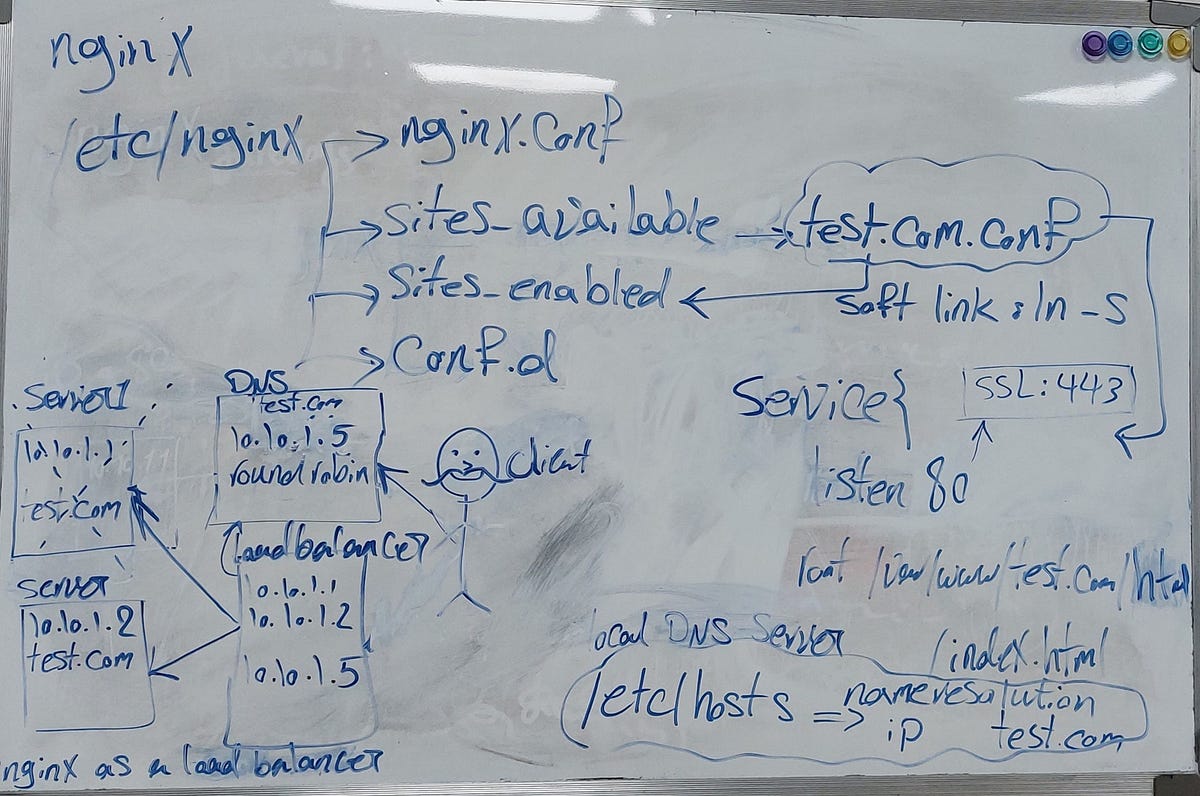 nginx
/etc/nginx → nginx.conf
→ Sites_available → test.com.conf
→ Sites_enabled ←
soft link : ln -s
→ Conf.d
Service {
SSL:443
listen 80
/www/test.com/html
/index.html
Server1
10.10.1.1
test.com
DNS
test.com
10.10.1.5
round robin
client
(load balancer
10.10.1.1
10.10.1.2
10.10.1.5
server
10.10.1.2
test.com
nginx as a load balancer
local DNS Server
/etc/hosts => name resolution
ip test.com